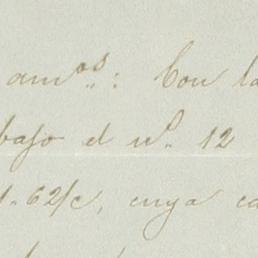 amos: Con la
bajo el no. 12
62/c, cuya ca